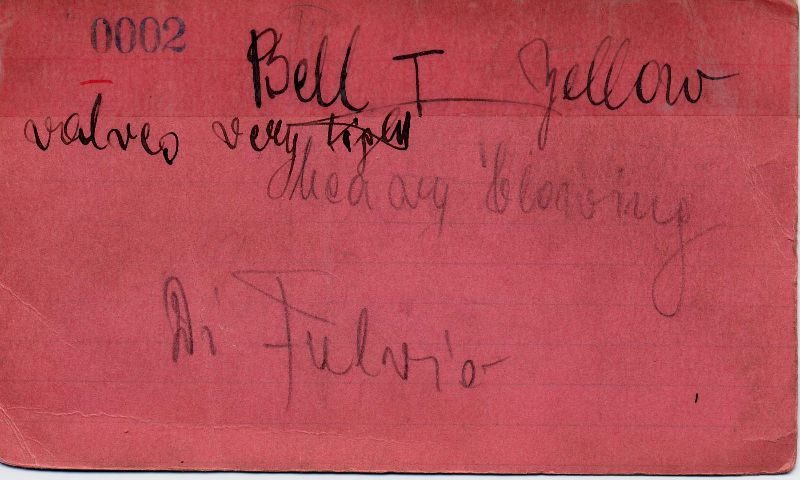 0002
Bell I Yellow
valves very tight
heavy blowing
Di Fulvio